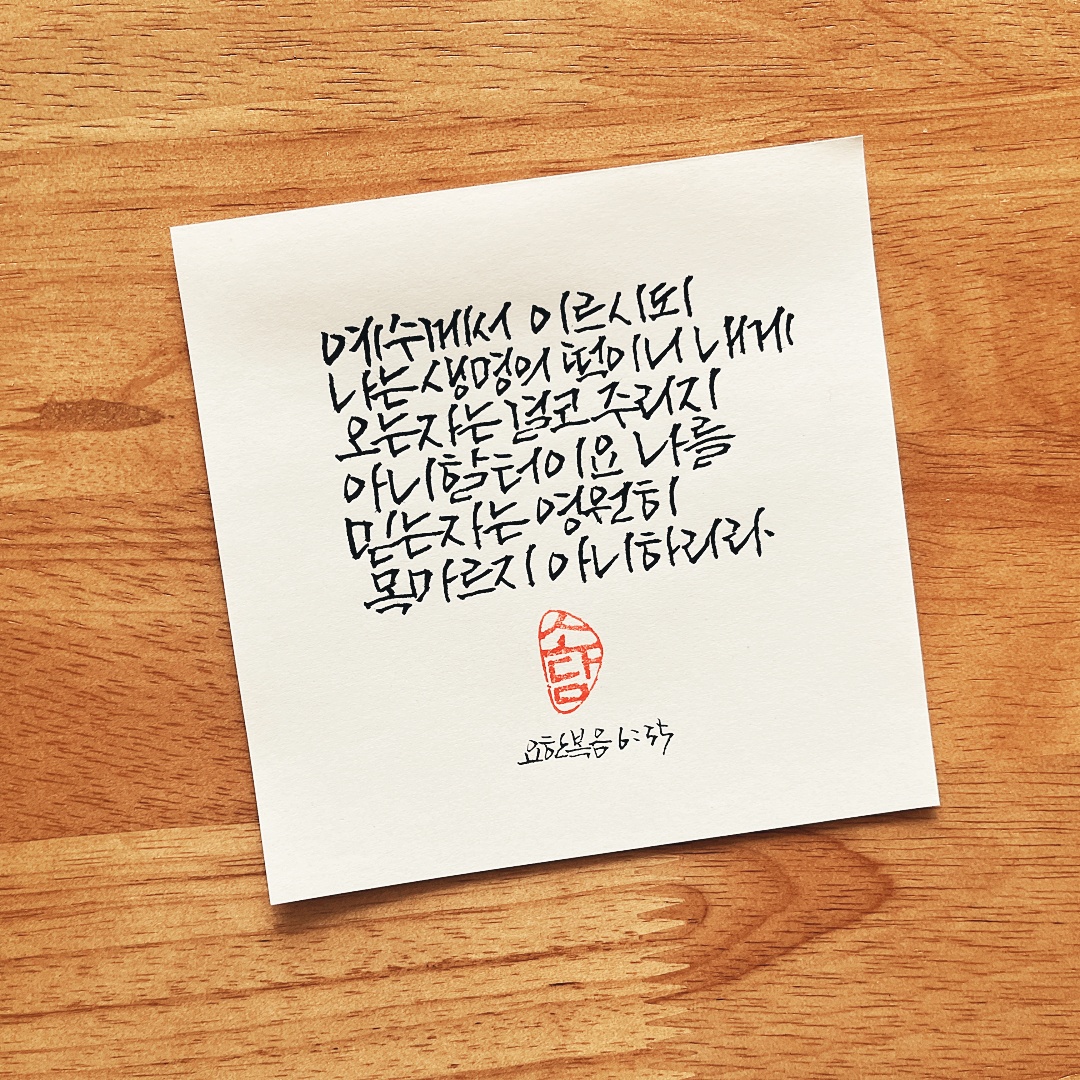 예수께서 이르시되
나는 생명의 떡이니 내게
오는 자는 결코 주리지
아니할 터이요 나를
믿는 자는 영원히
목마르지 아니하리라.
소담
요한복음 6:35